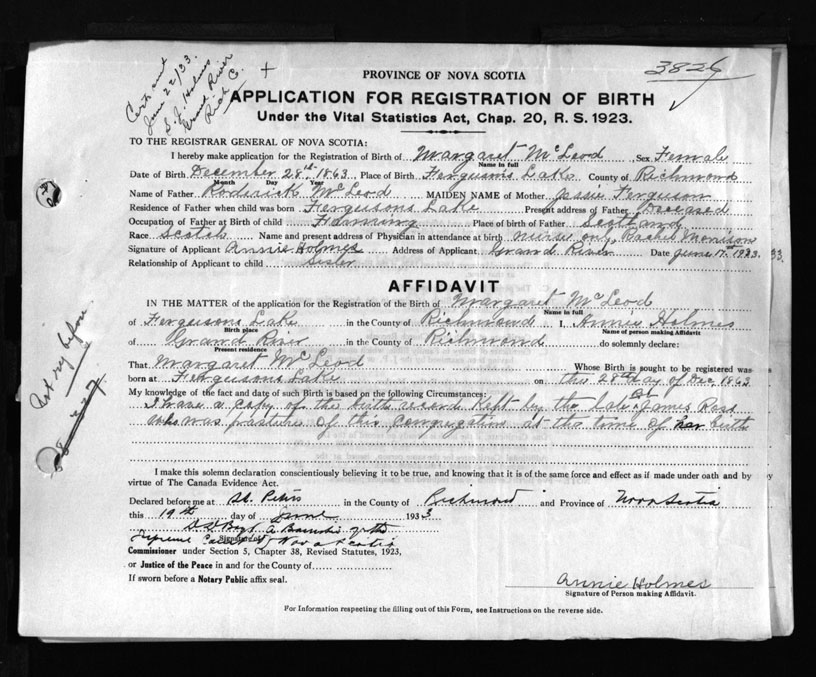 Cert. sent
June 22/33.
S. J. Holmes
Grand River
Rich C.
+
3824
PROVINCE OF NOVA SCOTIA
APPLICATION FOR REGISTRATION OF BIRTH
Under the Vital Statistics Act, Chap. 20, R. S. 1923.
TO THE REGISTRAR GENERAL OF NOVA SCOTIA:
I hereby make application for the Registration of Birth of Margaret McLeod, Sex Female
Name in full
Date of Birth December 28th 1863 Place of Birth Fergusons Lake County of Richmond
Month Day Year
Name of Father Roderick McLeod MAIDEN NAME of Mother Jessie Ferguson
Residence of Father when child was born Fergusons Lake Present address of Father Deceased
Occupation of Father at Birth of child Farming Place of birth of Father Scotland
Race Scotch Name and present address of Physician in attendance at birth nurse only, Rachel Morrison
Signature of Applicant Annie Holmes Address of Applicant Grand River Date June 17th 1933. 33.
Relationship of Applicant to child Sister
AFFIDAVIT
IN THE MATTER of the application for the Registration of the Birth of Margaret McLeod
Name in full
of Fergusons Lake in the County of Richmond I, Annie Holmes
Birth place Name of person making Affidavit
of Grand River in the County of Richmond do solemnly declare:
Present residence
That Margaret McLeod Whose Birth is sought to be registered was
born at Fergusons Lake on the 28th day of Dec 1863
My knowledge of the fact and date of such Birth is based on the following Circumstances:
I have a copy of the birth record kept by the late James Ross
who was pastor of this congregation at the time of her birth
not reg before
I make this solemn declaration conscientiously believing it to be true, and knowing that it is of the same force and effect as if made under oath and by
virtue of The Canada Evidence Act.
Declared before me at St. Peters in the County of Richmond and Province of Nova Scotia
this 19th day of June 1933
A Barrister of the
Supreme Court of Nova Scotia
Signature of
Commissioner under Section 5, Chapter 38, Revised Statutes, 1923,
or Justice of the Peace in and for the County of
If sworn before a Notary Public affix seal.
Annie Holmes
Signature of Person making Affidavit.
For Information respecting the filling out of this Form, see Instructions on the reverse side.